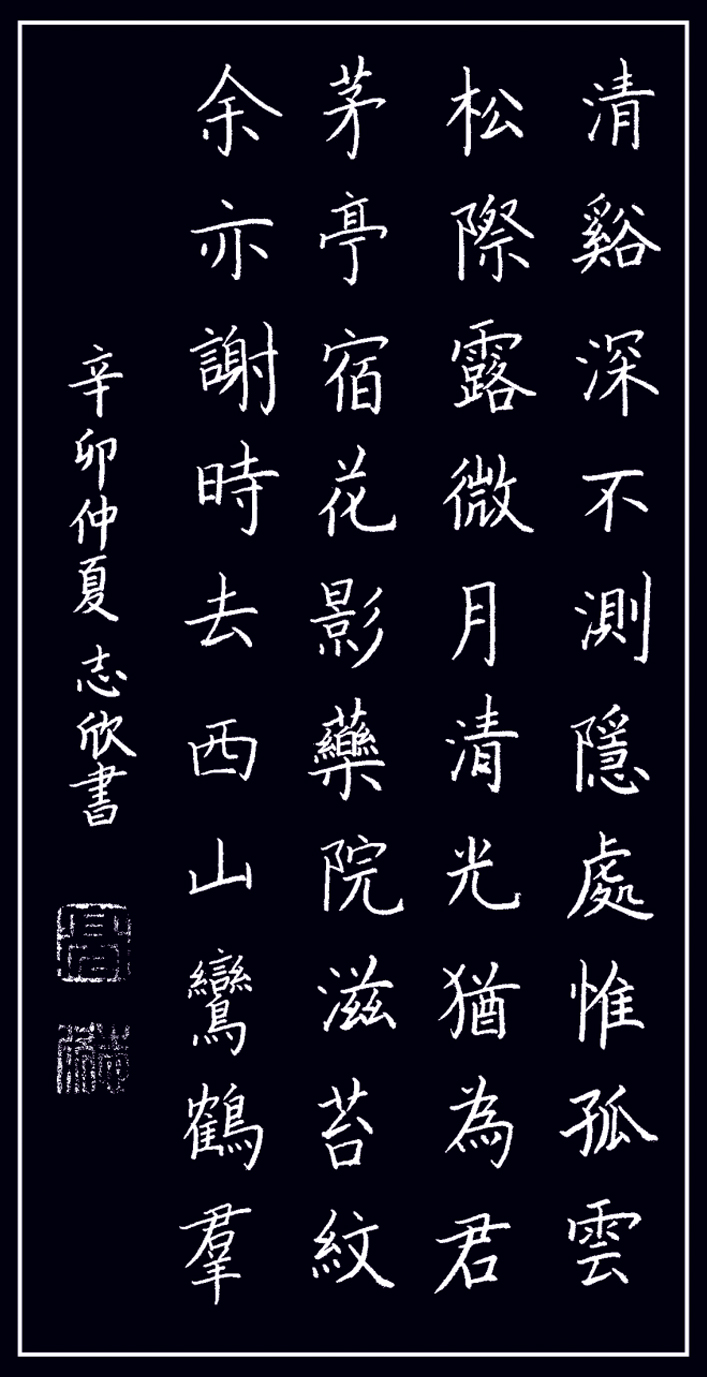 清谿深不測隱處惟孤雲
松際露微月清光猶為君
茅亭宿花影藥院滋苔紋
余亦謝時去西山鸞鶴羣
辛卯仲夏志欣書